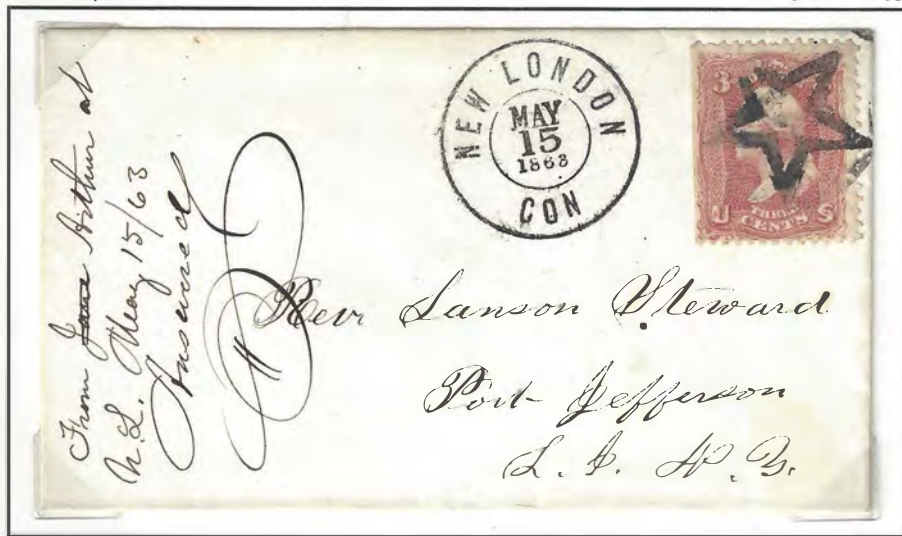 From Arthur at
N.L. May 15/63
Answered
NEW LONDON
MAY
15
1863
CON
3
U THREE S
CENTS
Revr Lanson Steward
Port Jefferson
L. I. N.Y.